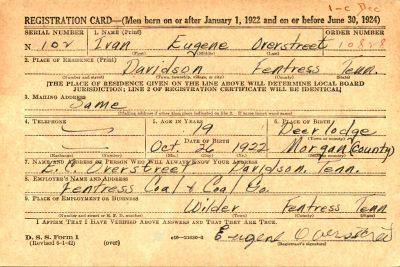 1-C Dec
REGISTRATION CARD—(Men born on or after January 1, 1922 and on or before June 30, 1924)
SERIAL NUMBER 1. NAME (Print) ORDER NUMBER
N 102 Ivan Eugene Overstreet 10828
(First) (Middle) (Last)
2. PLACE OF RESIDENCE (Print)
Davidson Fentress Tenn.
(Number and street) (Town, township, village, or city) (County) (State)
[THE PLACE OF RESIDENCE GIVEN ON THE LINE ABOVE WILL DETERMINE LOCAL BOARD
JURISDICTION; LINE 2 OF REGISTRATION CERTIFICATE WILL BE IDENTICAL]
3. MAILING ADDRESS
Same
(Mailing address if other than place indicated on line 2. If same insert word same)
4. TELEPHONE 5. AGE IN YEARS 6. PLACE OF BIRTH
19 Deer lodge
DATE OF BIRTH
Oct. 26 1922 Morgan (County)
7. NAME AND ADDRESS OF PERSON WHO WILL ALWAYS KNOW YOUR ADDRESS
E. C. Overstreet Davidson, Tenn.
8. EMPLOYER'S NAME AND ADDRESS
Fentress Coal & Coal Co.
9. PLACE OF EMPLOYMENT OR BUSINESS
Wilder Fentress Tenn
(Number and street or R. F. D. number) (Town) (County) (State)
I AFFIRM THAT I HAVE VERIFIED ABOVE ANSWERS AND THAT THEY ARE TRUE.
D. S. S. Form 1
(Revised 6-1-42) (over) Eugene Overstreet
(Registrant's signature)